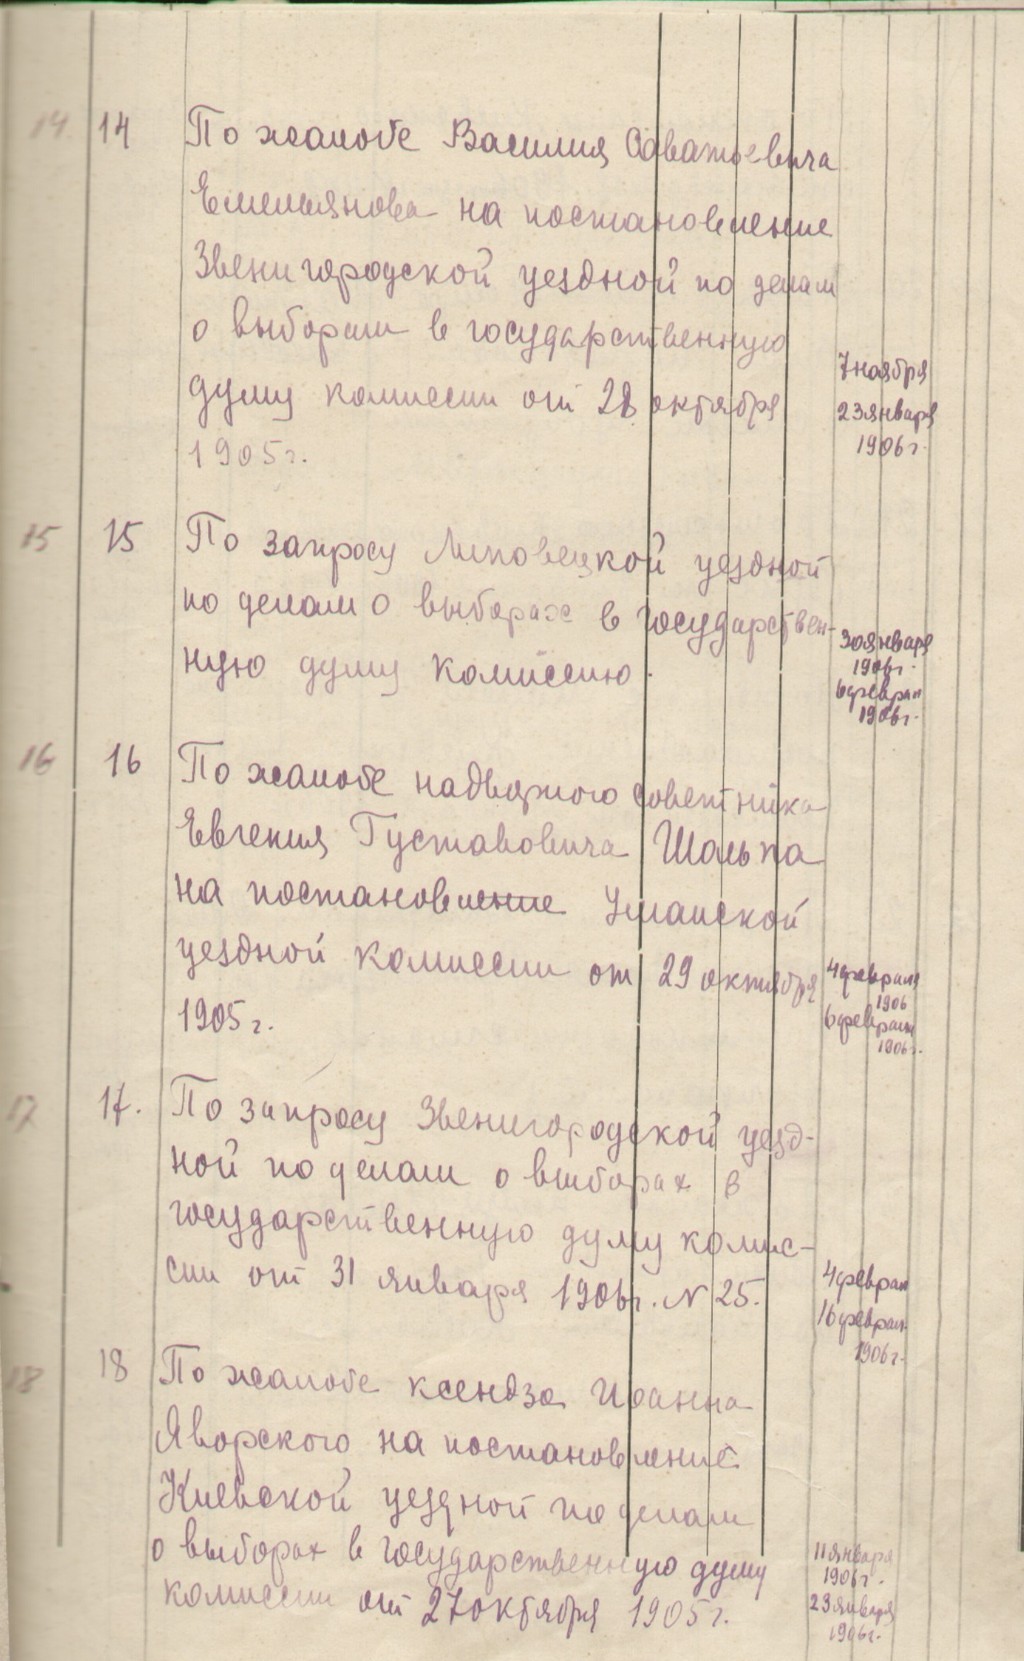 14 14 По жалобе Василия Саватьевича
Емельянова на постановление
Звенигородской уездной по делам
о выборам в государственную
думу комиссии от 28 октября
1905 г.
7 ноября
23 января
1906 г.
15 15 По запросу Липовецкой уездной
по делам о выборах в государствен-
ную думу комиссию.
30 января
1906 г.
6 феврал
1906 г.
16 16 По жалобе надворного советника
Евгения Густавовича Шальпа
на постановление Уманской
уездной комиссии от 29 октября
1905 г.
4 февраля
1906
6 февраля
1906 г.
17 17. По запросу Звенигородской уезд-
ной по делам о выборах в
государственную думу комис-
сии от 31 января 1906 г. N 25.
4 феврал
16 феврал
1906 г.
18 18 По жалобе ксендза Иоанна
Яворского на постановление
Киевской уездной по делам
о выборах в государственную думу
комиссии от 27 октября 1905 г.
11 января
1906 г.
23 января
1906 г.